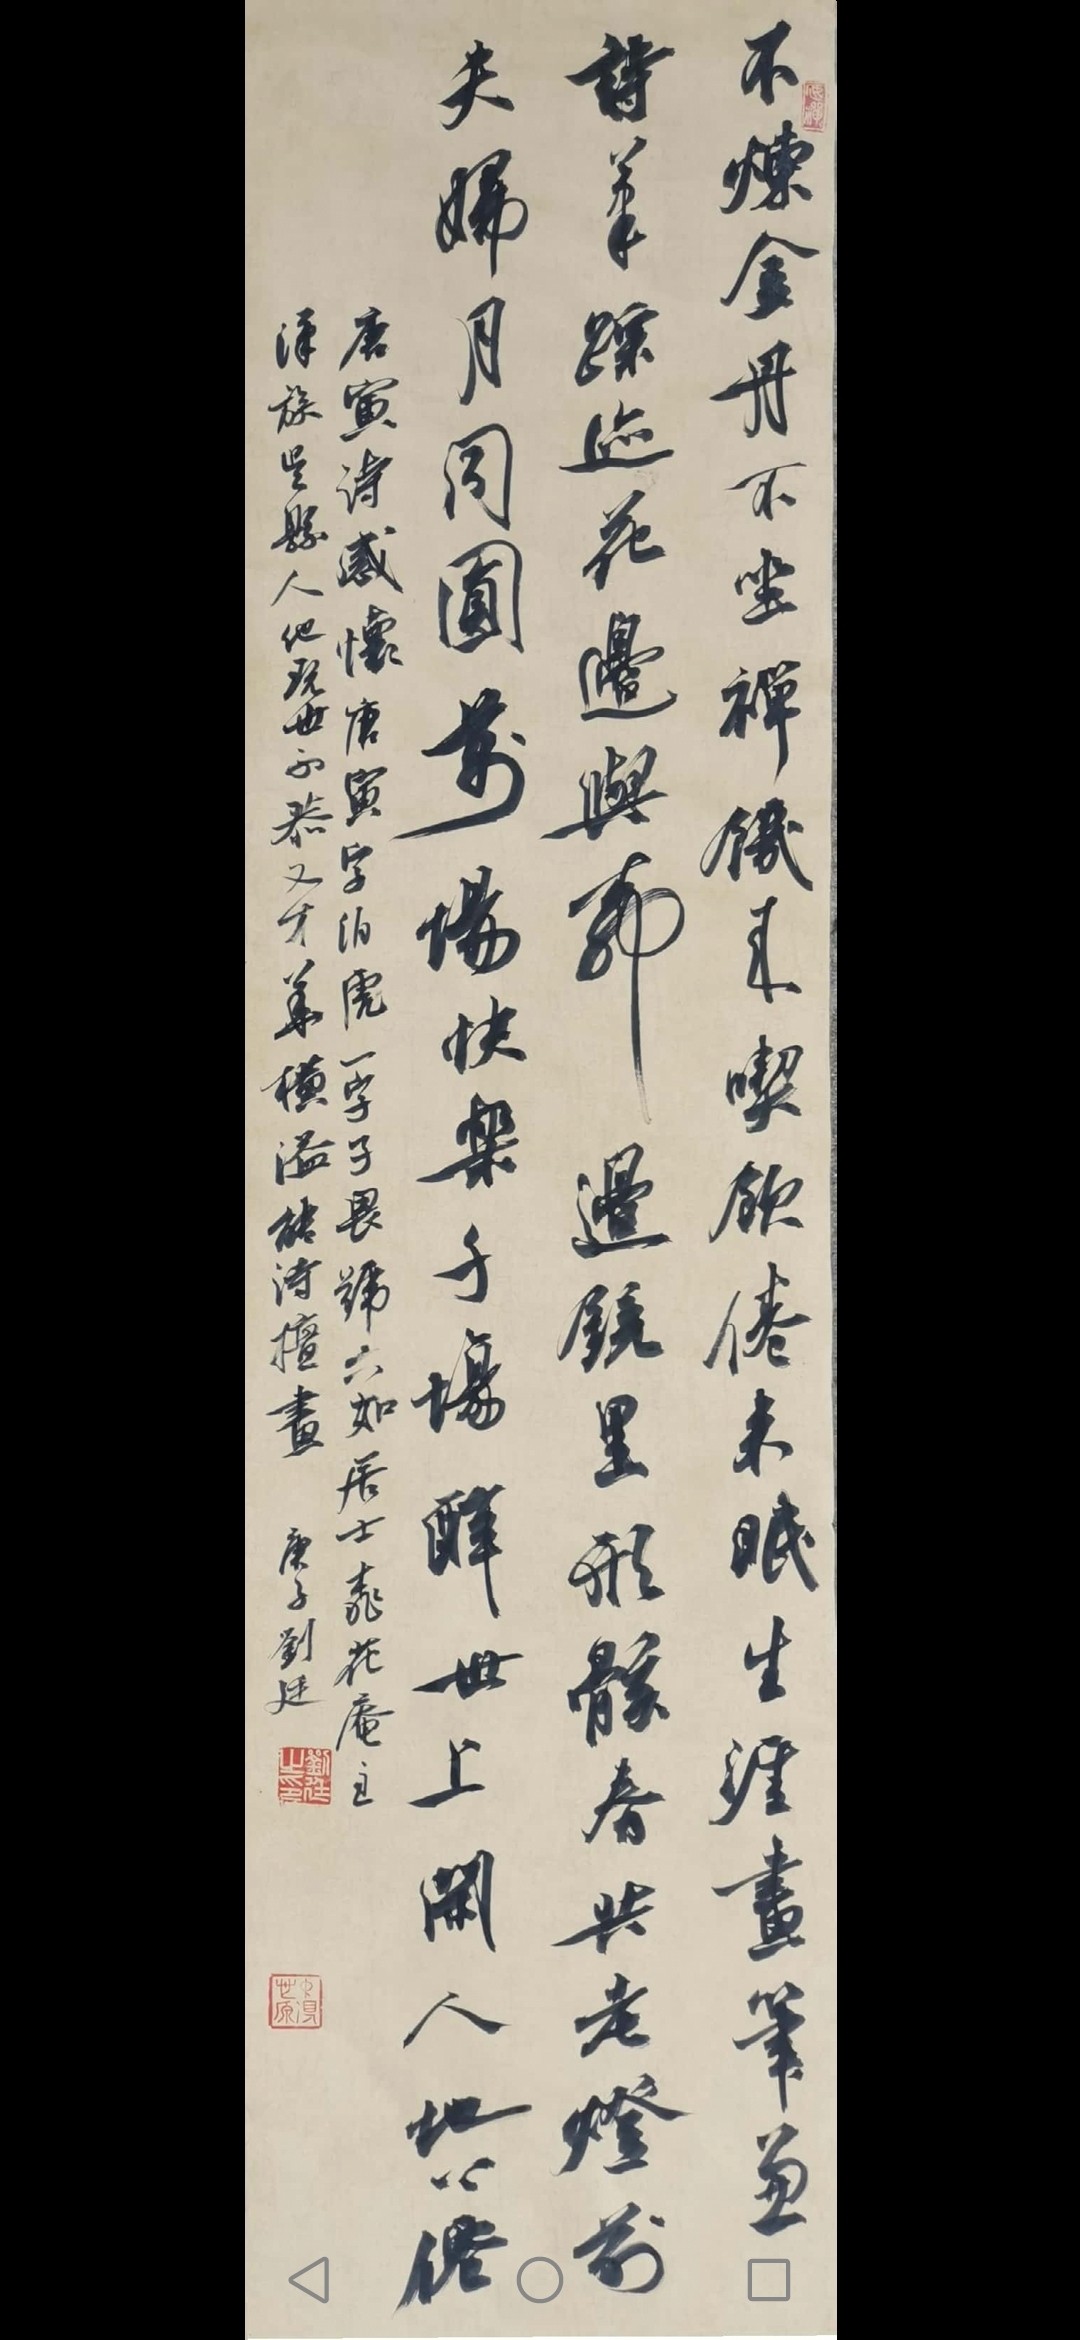 不煉金丹不坐禪饑來喫飯倦來眠生涯畫筆兼
詩筆蹤迹花邊與柳邊鏡里形骸春共老燈前
夫婦月同圓萬場快樂千場醉世上閑人地上僊
唐寅詩感懷唐寅字伯虎一字子畏號六如居士桃花庵主
漢族吳縣人他玩世不恭又才華橫溢能詩擅畫
庚子劉廷